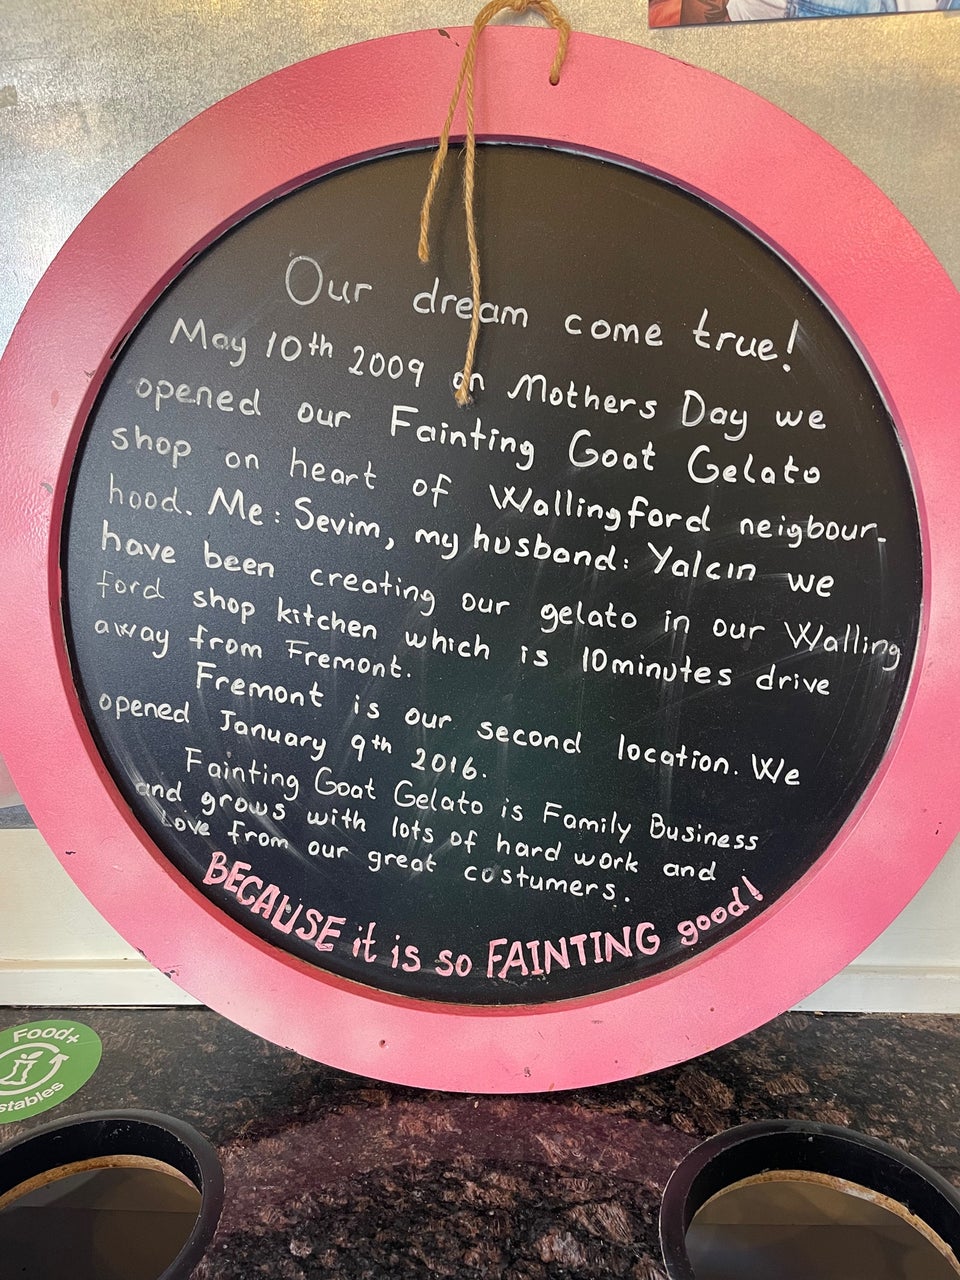 Our dream come true!
May 10th 2009 on Mothers Day we
opened our Fainting Goat Gelato
shop on heart of Wallingford neigbour-
hood. Me: Sevim, my husband: Yalcın we
have been creating our gelato in our Walling
ford shop kitchen which is 10minutes drive
away from Fremont.
Fremont is our second location. We
opened January 9th 2016.
Fainting Goat Gelato is Family Business
and grows with lots of hard work and
Love from our great costumers.
BECAUSE it is so FAINTING good!
Food+
stables